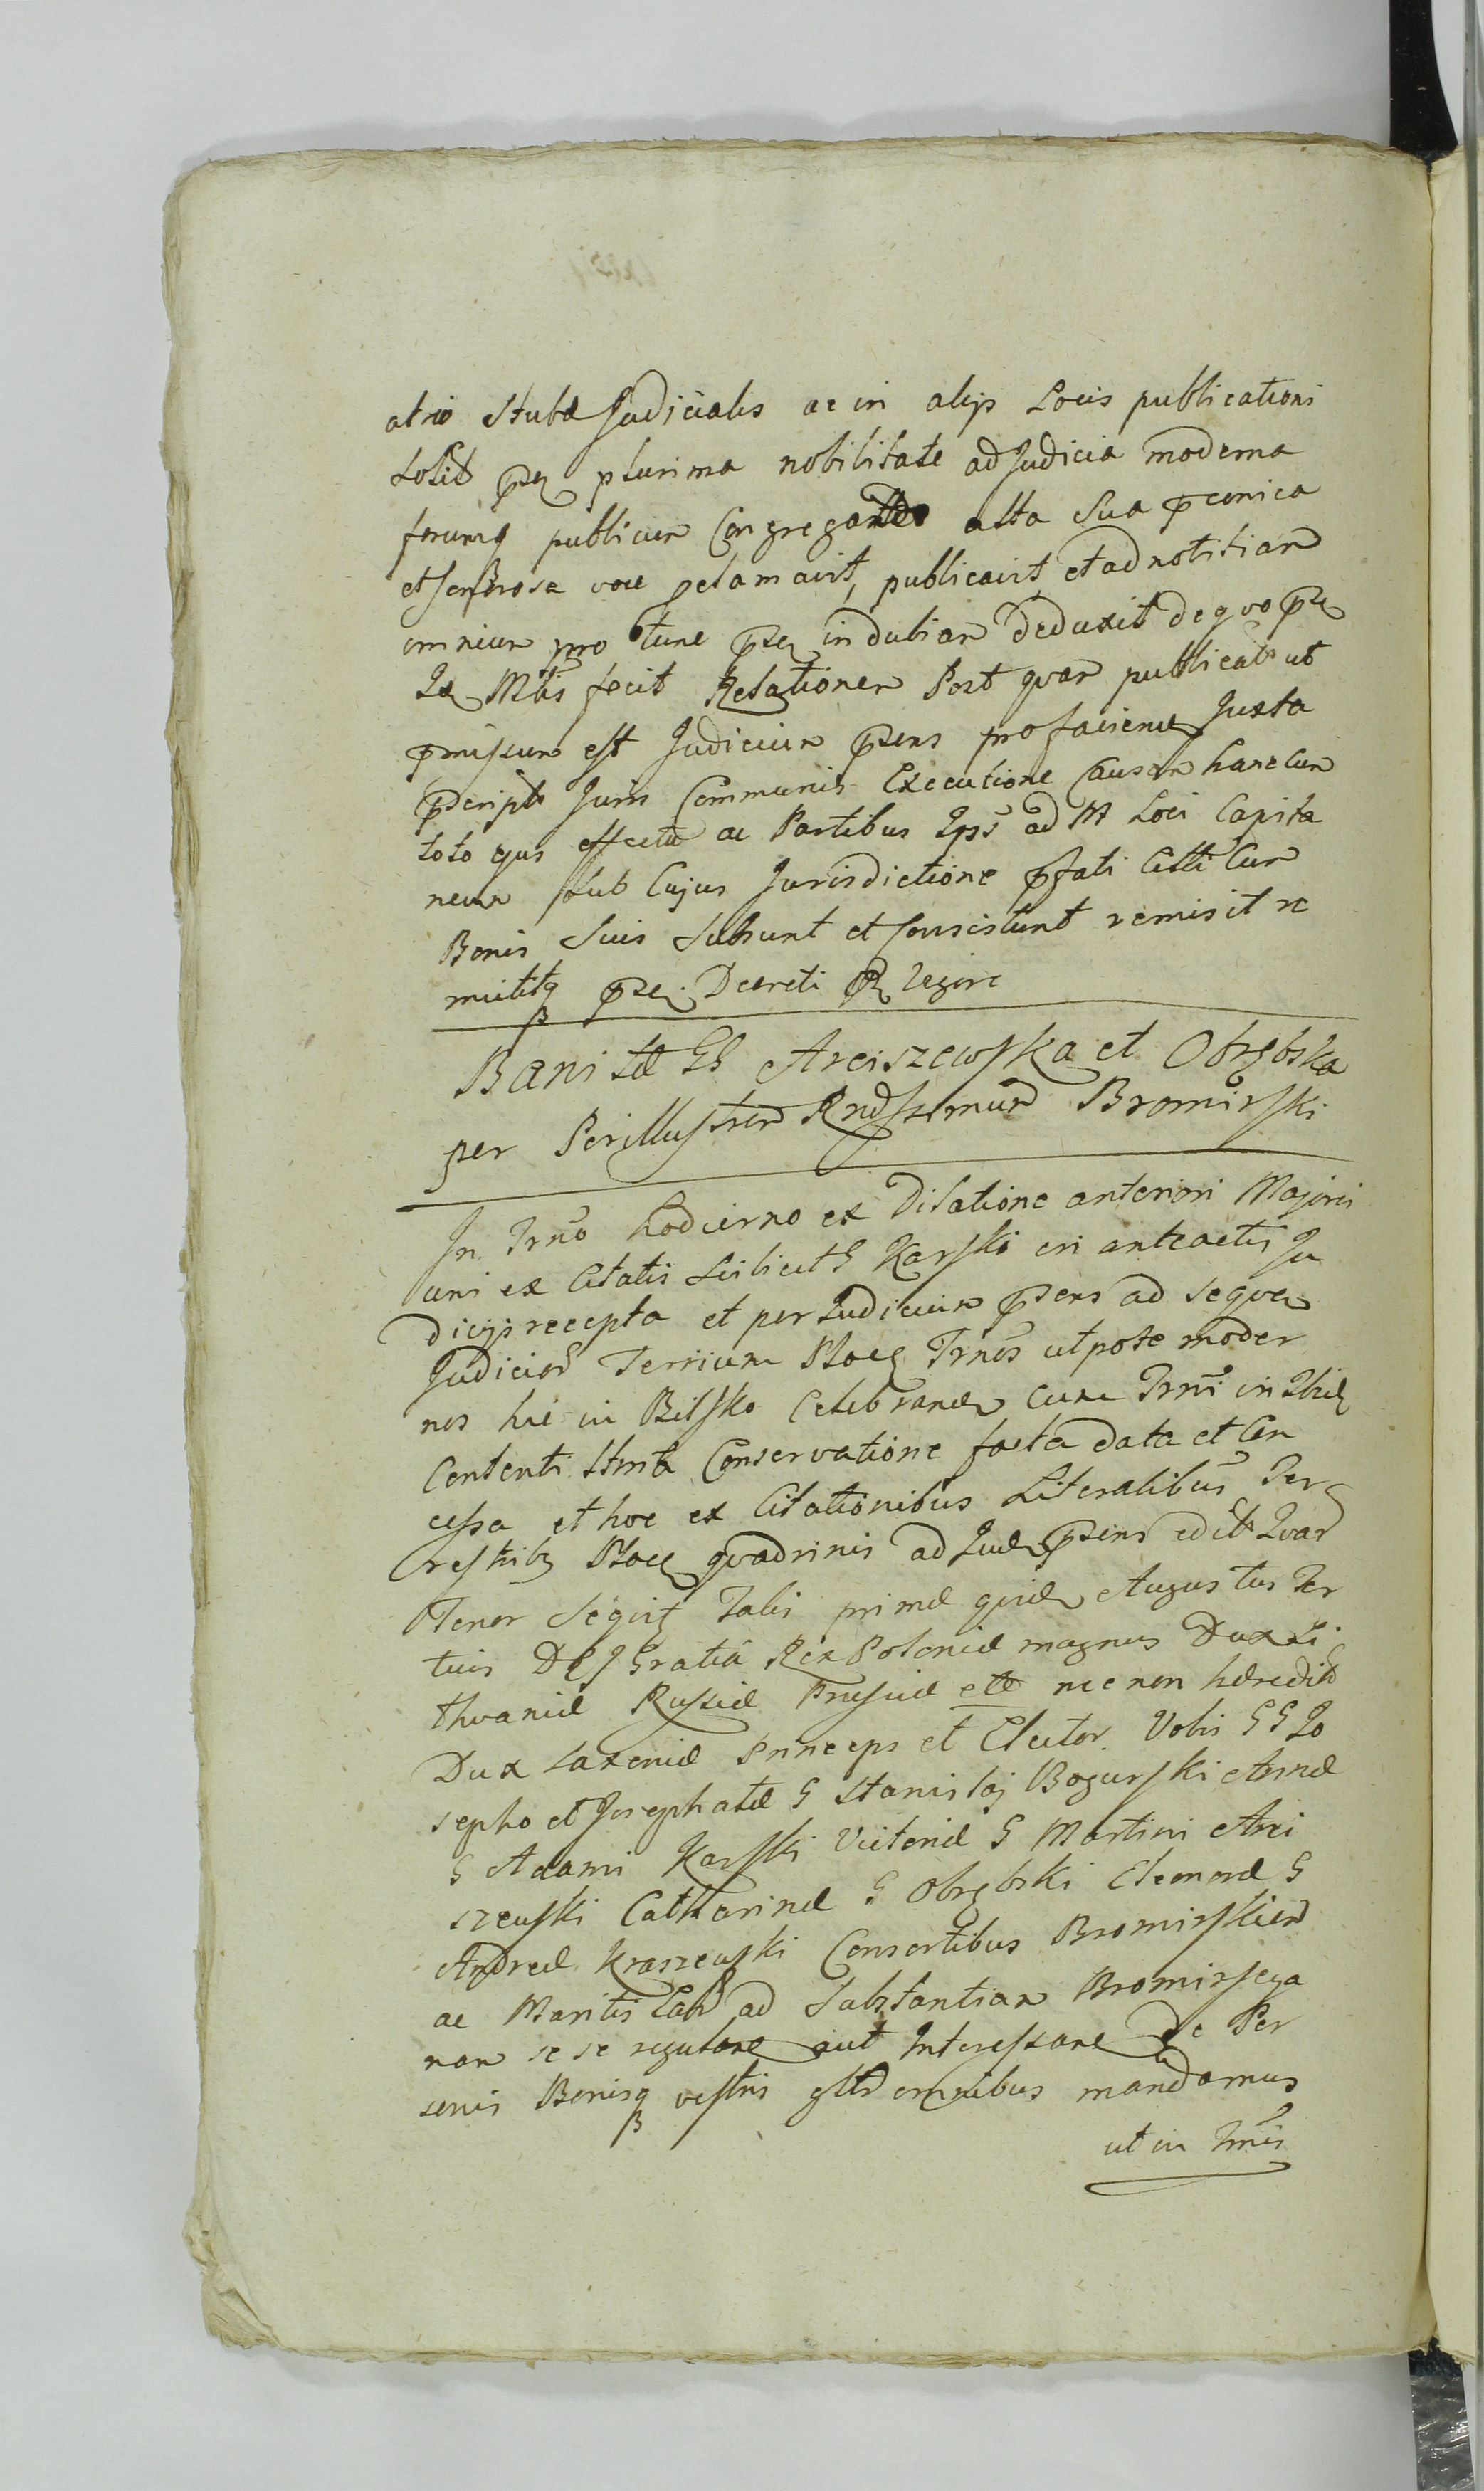 atrio Stubæ Judicialis ac in alijs Locis publicationi
solit psq plurima nobilitate ad Judicia moderna
forumq publicum Congregante alta Sua pconica
et senorosa voce pclamavit, publicavit et ad notitiam
omnium pro tunc psen indubiam deduxit de quo pse
Je Mtis fecit Relationem Post quam publicat ut
pmissum est Judicium psens pro faciend Juxta
pscript Juris Communis Executione Causam hanc cum
toto ejus effectu ac Partibus Ips ad M Loci Capita
neum sub Cujus Jurisdictione pfati Citti Cum
Bonis Suis Subsunt et consistunt remisit re
mittitq pse Decreti vigore
Banitæ GG Arciszewska et Obrębska
per Perillustrem Rndssimum Bromirski
In Trno hodierno ex Dilatione anteriori Majori
uni ex Citatis scilicet G Karski in anteactis Ju
dicijs recepta et per Judicium psens ad sequen
Judicior Terrium Ploce Trnos utpote moder
nos hic in Bilsko Celebrand cum Trni in Ibid
Contenti Conservatione facta data et Con
cessa et hoc ex Citationibus Literalibus Ter
restribq Ploce quadrinis ad Jud psens edit Quar
Tenor Sequit Talis primæ quid Augustus Ter
tius D G Gratia Rex Poloniæ magnus Dux Li
thvaniæ Russiæ Prussiæ etc nec non hæredit
Dux Saxoniæ Princeps et Elector. Vobis G G Jo
sepho et Josephatæ G Stanislaj Bogurski Annæ
G Adami Karski Victoriæ G Martini Arci
szewski Catharinæ G Obrębski Eleonoræ G
Andreæ Kraszewski Consortibus Bromirskien
ac Maritis Ear ad Substantiam Bromirsega
nam se se regulare aut Interessare de Per
sonis Bonisq vestris gttr omnibus mandamus
ut in Trnis